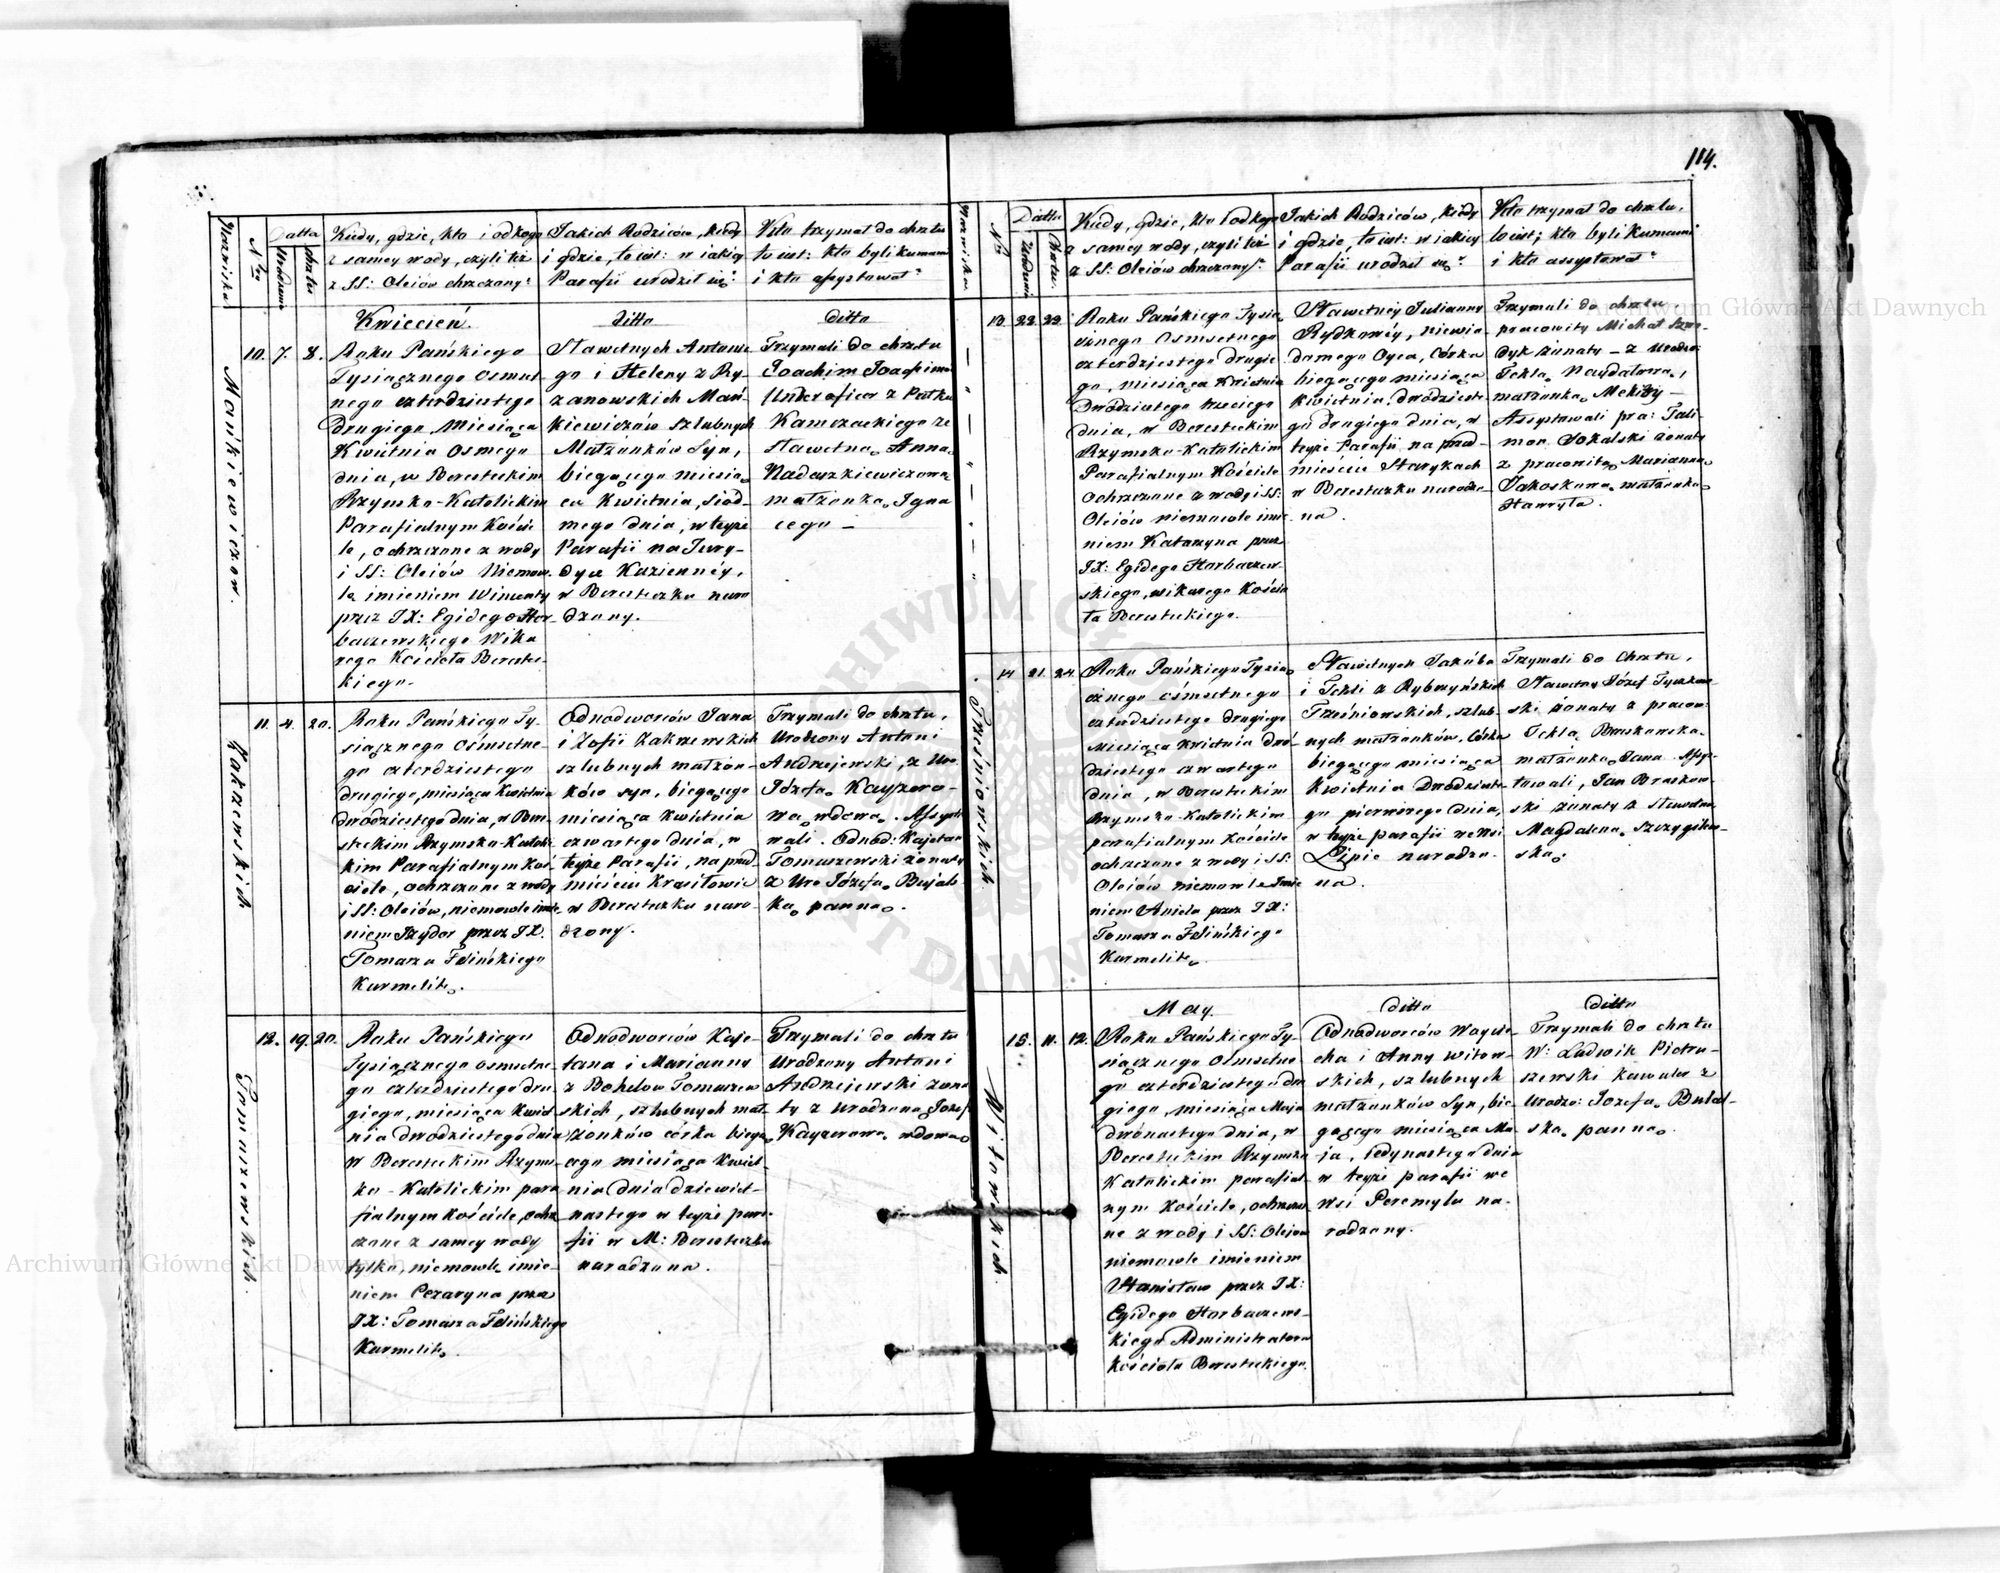 114.
Nazwiska
Nry
Datta
Urodzenia
Chrztu
Kiedy, gdzie, kto i od kogo
z samey wody, czyli też
z SS: Oleiów chrzczony?
Jakich Rodziców, kiedy
i gdzie, to iest: w iakiey
Parafii urodził się?
Kto trzymał do chrztu
to iest: kto byli kumami
i kto assystował?
Mańkiewiczow.
10. 7. 8.
Kwiecień.
Roku Pańskiego
Tysiącznego Osmset-
nego czterdziestego
drugiego, Miesiąca
Kwietnia Osmego
dnia, w Beresteckim
Rzymsko-Katolickim
Parafialnym Kości-
le, ochrzczone z wody
i SS: Oleiów Niemow-
le imieniem Wincenty
przez JX: Egidego Hor-
baczewskiego Wika-
rego Kościoła Bereste-
kiego.
ditto
Sławetnych Antonie-
go i Heleny z Ry-
zanowskich Mań-
kiewiczów szlubnych
Małżonków Syn,
biegącego miesią-
ca Kwietnia, siod-
mego dnia, w teyże
Parafii na Jury-
dyce Kazienney,
w Beresteczku naro
dzony.
ditto
Trzymali do chrztu
Joachim Joachimo
Underoficer z Pułku
Kamczackiego ze
sławetną Anną
Nadaszkiewiczową
małżonką Igna
cego —
Zakrzewskich
11. 4. 20.
Roku Pańskiego Ty-
siącznego Ośmsetne-
go czterdziestego
drugiego, miesiąca Kwietnia
dwódziestego dnia, w Bere-
steckim Rzymsko-Katolic-
kim Parafialnym Koś-
ciele, ochrzczone z wody
i SS: Oleiów, niemowle imie-
niem Izydor przez JX.
Tomasza Felińskiego
Karmelitę.
Odnodworców Jana
i Zofii Zakrzewskich
szlubnych małżon-
ków syn, biegącego
miesiąca Kwietnia
czwartego dnia, w
teyże Parafii, na przed-
mieściu Krasiłowie
w Beresteczku naro-
dzony.
Trzymali do chrztu,
Urodzony Antoni
Andrzejewski, z Uro.
Józefą Kayzero-
wą wdową. Assysto
wali. Odnod: Kajetan
Tomaszewski żonaty
z Uro Józefą Bujal-
ką panną.
Tomaszewskich.
12. 19. 20.
Roku Pańskiego
Tysiącznego osmsetne-
go czterdziestego dru-
giego, miesiąca Kwiet-
nia dwodziestego dnia
w Beresteckim Rzyms-
ko-Katolickim para-
fialnym Kościele, ochrz-
czone z samey wody
tylko, niemowle imie-
niem Cezaryna przez
JX: Tomasza Felińskiego
Karmelitę.
Odnodworców Kaje-
tana i Marianny
z Bohdow Tomaszew
skich, szlubnych mał-
żonków córka biegą-
cego miesiąca Kwiet-
nia dnia dziewiet-
nastego w teyże para-
fii w M: Beresteczku
narodzona.
Trzymali do chrztu
Urodzony Antoni
Andrzejewski żona
ty z Urodzoną Józef
Kayzerową wdową
Nazwiska
Nry
Datta
Urodzenia
Chrztu.
Kiedy, gdzie, kto i od kogo
z samey wody, czyli też
z SS: Oleiów chrzczony?
Jakich Rodziców, kiedy
i gdzie, to iest: w iakiey
Parafii urodził się?
Kto trzymał do chrztu,
to iest; kto byli Kumami
i kto assystował?
13. 22. 23.
Roku Pańskiego Tysią
cznego Osmsetnego
czterdziestego drugie
go, miesiąca Kwietnia
Dwódziestego trzeciego
dnia, w Beresteckim
Rzymsko-Katolickim
Parafialnym Kościele
ochrzczone z wody i SS:
Oleiów niemowle imie
niem Katarzyna przez
JX: Egidego Horbaczew-
skiego, wikarego Kościo
ła Beresteckiego.
Sławetney Julianny
Rydkowéy, niewia
domego Oyca, Córka
biegącego miesiąca
Kwietnia, dwódzieste
go drugiego dnia, w
teyże Parafii, na przed-
mieściu Starykach
w Beresteczku narodzo
na.
Trzymali do chrztu,
pracowity Michał Szwe-
dyk żonaty — z Urodzo:
Teklą Nardalową,
małżonką Mekity —
Assystowali pra: Fali-
mon Sokalski żonaty
z pracowitą Marianną
Sakoskową małżonką
Hawryła.
Trześniowskich.
14 21. 24.
Roku Pańskiego Tysią
cznego ośmsetnego
czterdziestego drugiego
Miesiąca Kwietnia dwó-
dziestego czwartego
dnia, w Beresteckim
Rzymsko-Katolickim
parafialnym Kościele
ochrzczone z wody i SS:
Oleiów niemowle Imie
niem Aniela przez JX:
Tomasza Felińskiego
Karmelitę.
Sławetnych Jakóba
i Tekli z Rybczyńskich
Trześniowskich, szlub-
nych małżonków, Córka
biegącego miesiąca
Kwietnia Dwódzieste
go pierwszego dnia,
w teyże parafii we Wsi
Lipie narodzo-
na.
Trzymali do Chrztu,
Sławetny Józef Tyszkow
ski żonaty z pracow:
Teklą Braskowską
małżonką Jana. Assys-
towali, Jan Braskow-
ski żonaty z sławetną
Magdaleną Szczygiels-
ską.
Witowskich.
15. 11. 12.
May.
Roku Pańskiego Ty-
siącznego Osmsetne
go czterdziestego dru
giego, miesiąca Maja
dwónastego dnia, w
Beresteckim Rzymsko
Katolickim parafial-
nym Kościele, ochrzczo
ne z wody i SS: Olejow
niemowle imieniem
Stanisław przez JX:
Egidego Horbaczews-
kiego Administratora
Kościoła Beresteckiego.
ditto
Odnodworców Woycie-
cha i Anny Witow-
skich, szlubnych
małżonków Syn, bie-
gącego miesiąca Ma-
ja, jedynastego dnia
w teyże parafii we
wsi Peremylu na-
rodzony.
ditto
Trzymali do chrztu
W: Ludwik Pietru-
szewski kawaler z
Urodzo: Jozefą Bulal-
ską panną.
Archiwum Główne Akt Dawnych
Archiwum Główne Akt Dawnych